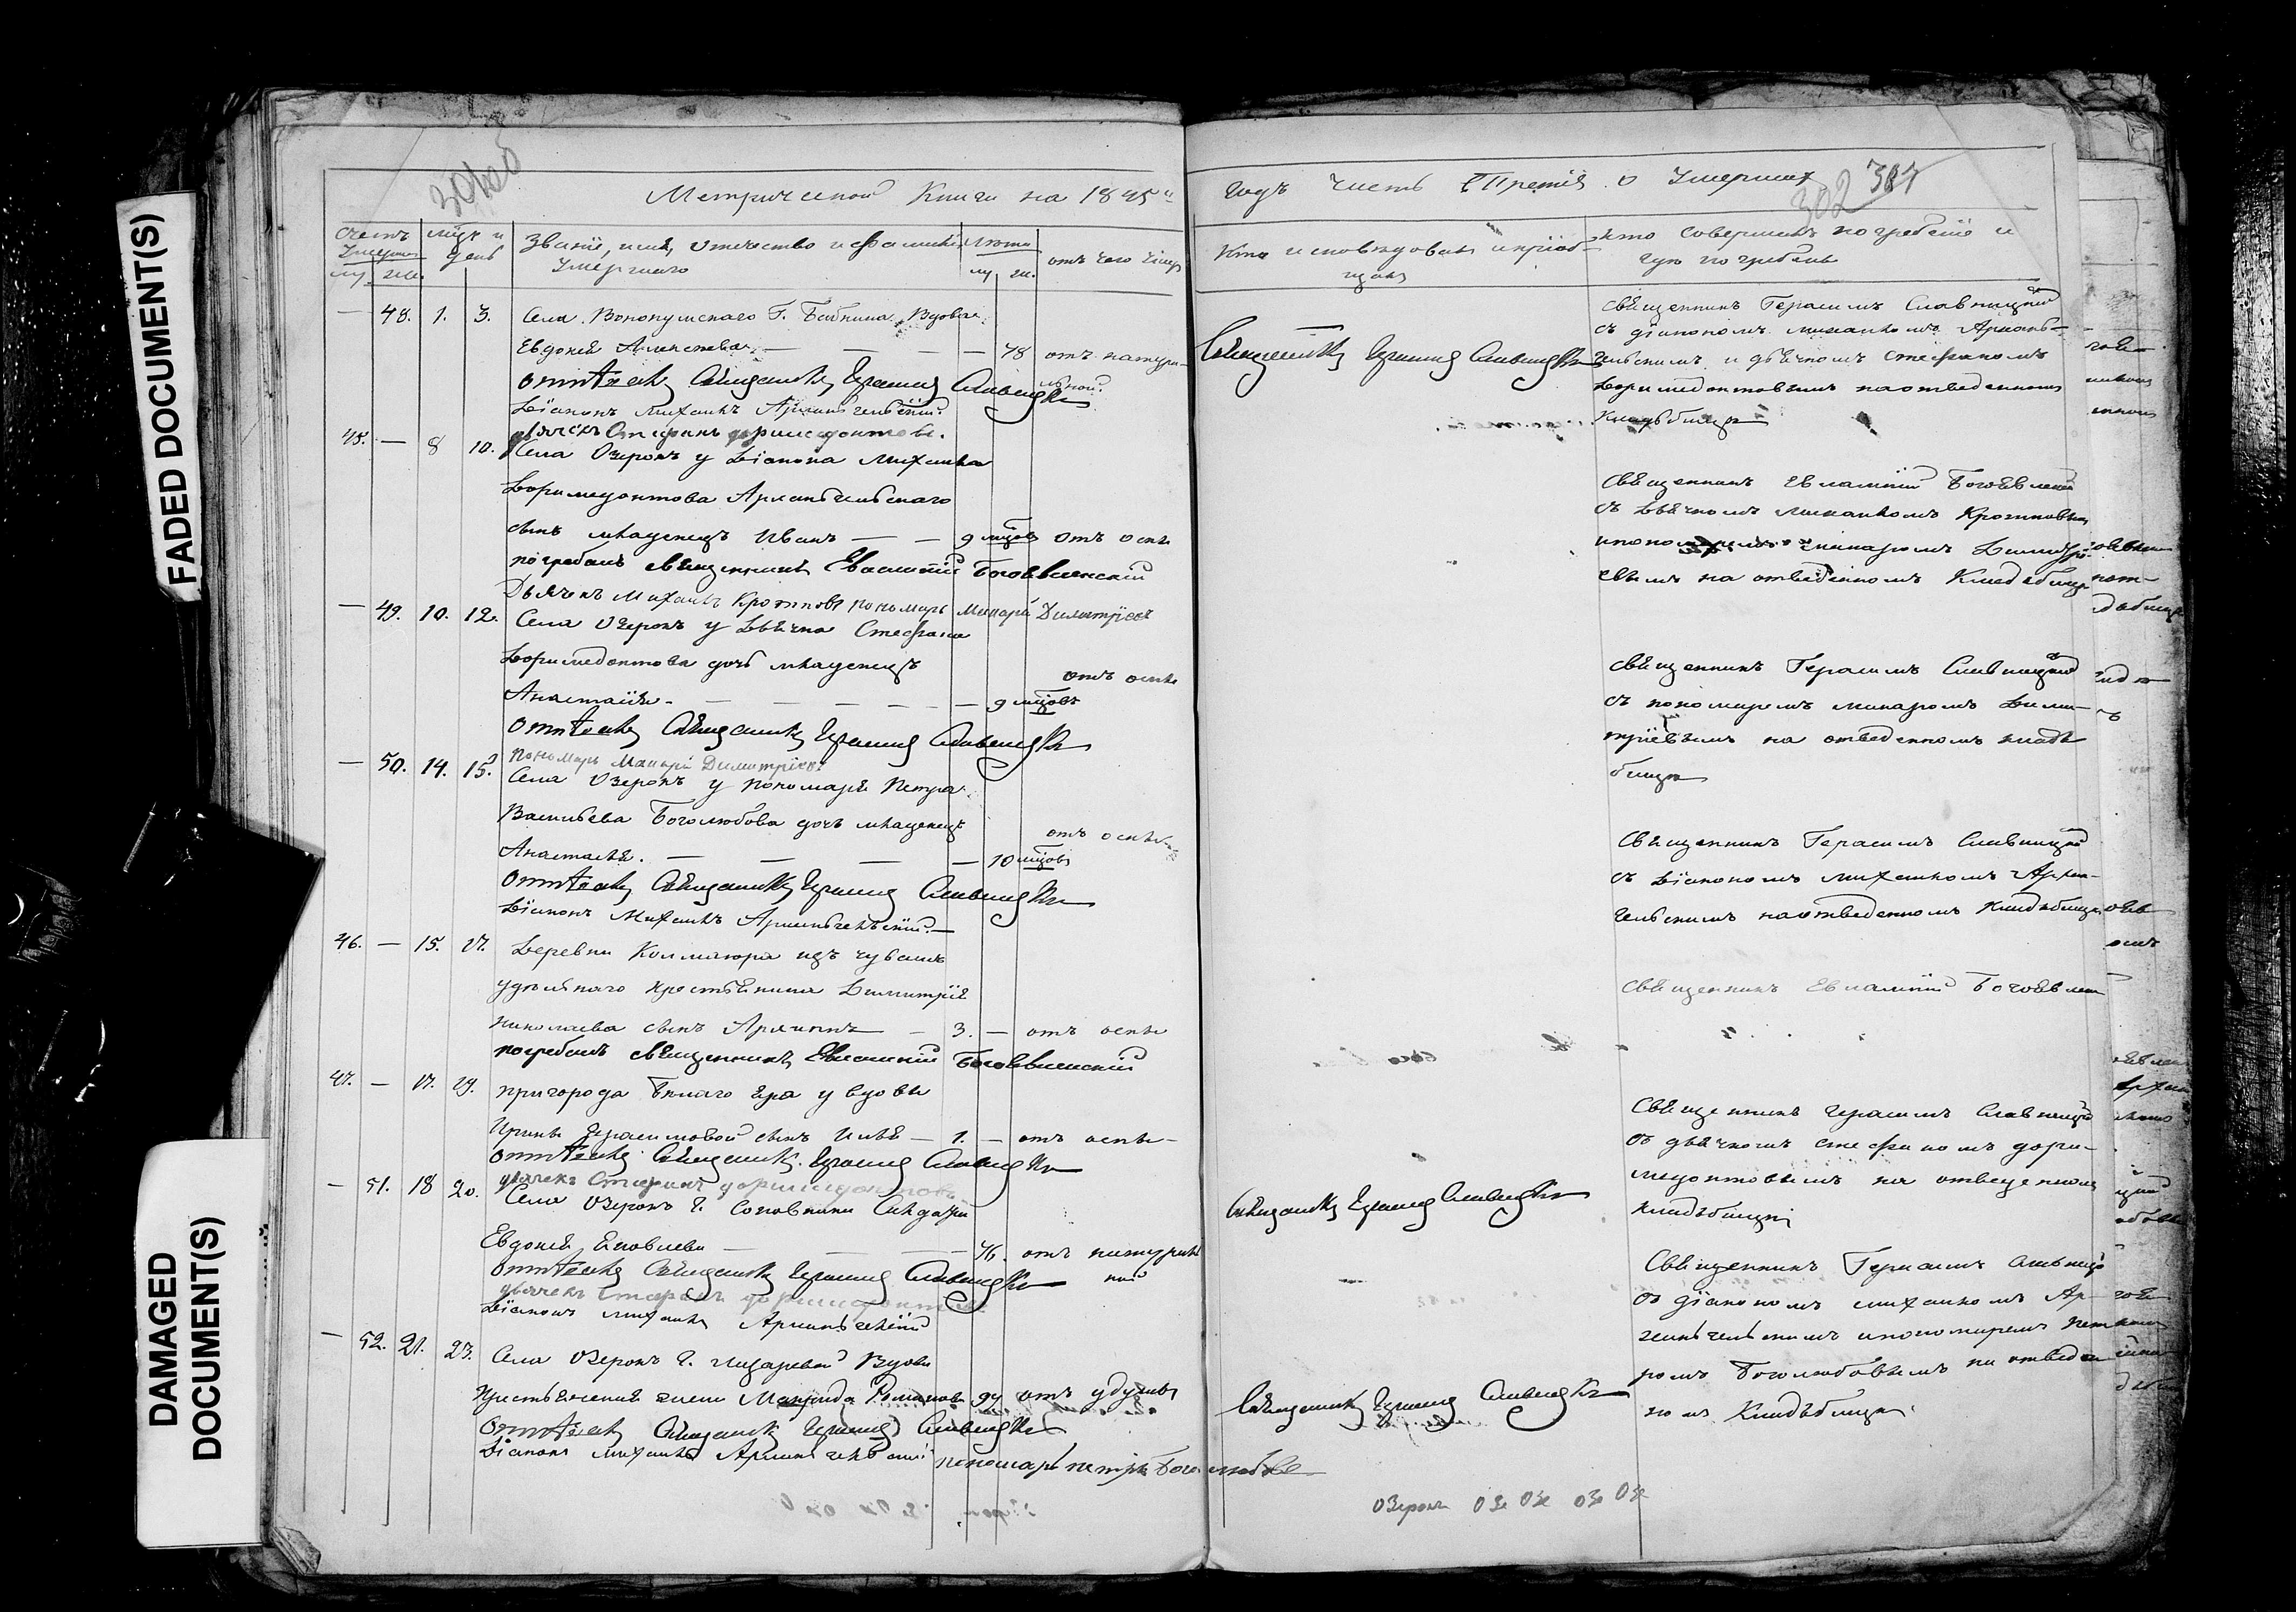 FADED DOCUMENT(S)
DAMAGED DOCUMENT(S)
Метрической Книги на 1845й
годъ часть Третія о Умершихъ
302 387
счетъ умерш
му. же.
мцъ и день
Званіе, имя, отечество и фамилія
Умершаго
Лета
му же.
отъ чего умеръ
Кто исповѣдовалъ и пріоб-
щалъ
кто совершалъ погребеніе и
гдѣ погребены
— 48. 1. 3. Села Г. Бабкина Вдова
Евдокія Алексѣева — — — — 78 отъ натура-
льной
Отпѣвалъ Священникъ Герасимъ Славницкій
Діаконъ Михаилъ Архангельскій
дьячекъ Стефанъ доримедонтовъ.
Священникъ Герасимъ Славницкій
Священникъ Герасимъ Славницкій
съ діакономъ михаиломъ Архан-
гельскимъ и дьячкомъ стефаномъ
Доримедонтовымъ на отведенномъ
Кладбищѣ
45. — 8 10. Села Озерокъ у Діакона Михаила
Доримедонтова Архангельскаго
сынъ младенецъ Иванъ — — 9 мцовъ отъ оспы
погребалъ священникъ Евлампій Богоявленскій
Дьячекъ Михаилъ Кротковъ пономарь Макарій Димитріевъ
Священникъ Евлампій Богоявленскій
съ Дьячкомъ михаиломъ Кротковымъ
и пономаремъ макаромъ Димитрі-
евымъ на отведенномъ Кладбищѣ
— 49. 10. 12. Села Озерокъ у Дьячка Стефана
Доримедонтова дочь младенецъ
Анастасія — — — — — 9 мцовъ отъ оспы
Отпѣвалъ Священникъ Герасимъ Славницкій
Пономарь Макарій Димитріевъ
Священникъ Герасимъ Славницкій
съ пономаремъ макаромъ Дими-
тріевымъ на отведенномъ кладь
бищѣ
— 50. 14. 15. Села Озерокъ у пономаря Петра
Васильева Боголюбова дочь младенецъ
Анастасія. — — — — 10 мцовъ отъ оспы
Отпѣвалъ Священникъ Герасимъ Славницкій
Діаконъ Михаилъ Архангельскій. —
Священникъ Герасимъ Славницкій
съ Діакономъ михаиломъ Архан-
гельскимъ на отведенномъ Кладбищѣ
46. — 15. 17. Деревни Калмаюра изъ чувашъ
удѣльнаго крестьянина Димитрія
николаева сынъ — 3. — отъ оспы
погребалъ священникъ Евлампій Богоявленскій
Священникъ Евлампій Богоявлен
47. — 17. 19. пригорода Бѣлаго Яра у вдовы
Ирины Герасимовой сынъ Илья — 1. — отъ оспы —
Отпѣвалъ Священникъ Герасимъ Славницкій
дьячекъ Стефанъ доримедонтовъ
Священникъ Герасимъ Славницкій
съ дьячкомъ стефаномъ дори-
медонтовымъ на отведенномъ
кладбищѣ
— 51. 18 20. Села Озерокъ Г.
Евдокія Яковлева — — 76. отъ натураль
ной
Отпѣвалъ Священникъ Герасимъ Славницкій
дьячекъ Стефанъ доримедонтовъ
Діаконъ михаилъ Архангельскій
Священникъ Герасимъ Славницкій
Священникъ Герасимъ Славницкій
съ діакономъ михаиломъ Ар-
хангельскимъ и пономаремъ пет
ромъ Боголюбовымъ на отведен
номъ Кладбищѣ
— 52. 21. 23. Села Озерокъ Г. Вдова
Крестьянская Романова 97 отъ удушья
Отпѣвалъ Священникъ Герасимъ Славницкій
Діаконъ михаилъ Архангельскій пономарь петръ Боголюбовъ
Священникъ Герасимъ Славницкій
Озерокъ Озе Озе Озе Озе